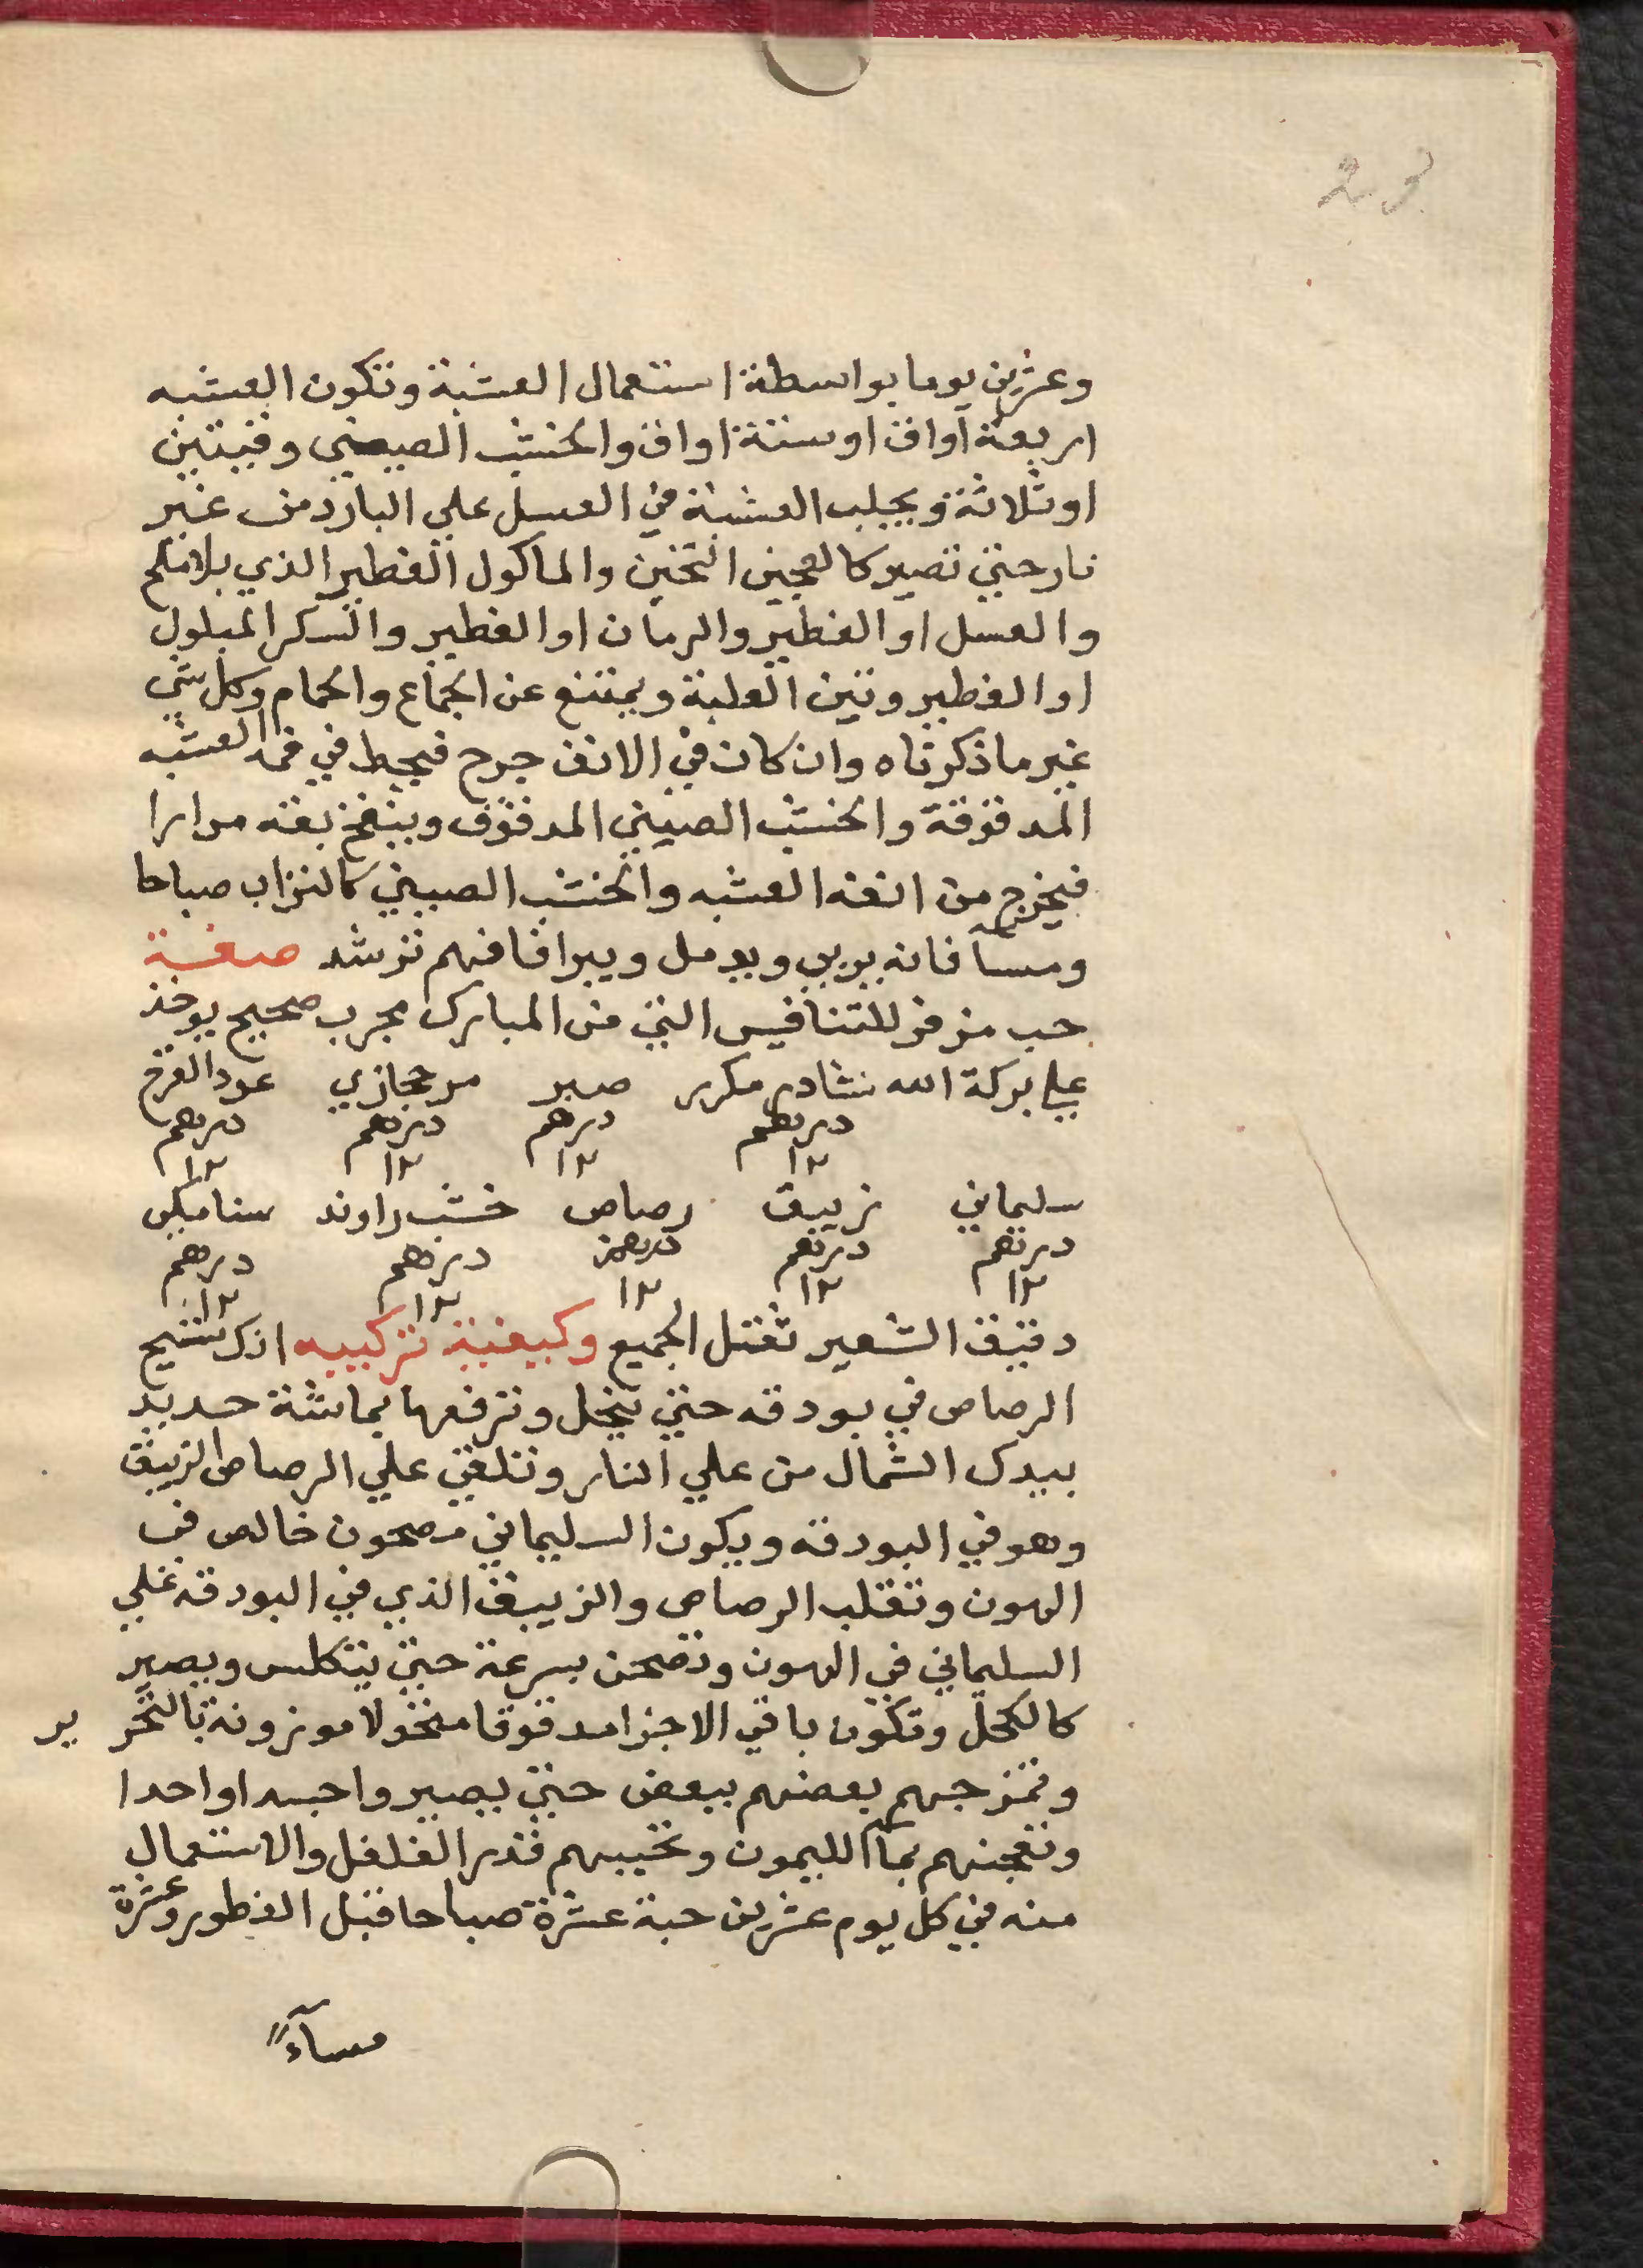 23
وعشرين يوما بواسطة استعمال العشبة وتكون العشبه
اربعة آواق او ستة اواق والخشب الصيني وقيتين
او ثلاثة ويجلب العشبة في العسل علي البارد من غير
نار حتي تصير كالعجين التخين والماكول الفطير الذي بلا ملح
والعسل او الفطير والرمان او الفطير والسكر المبلول
او الفطير وتين العلبة ويمتنع عن الجماع والحمام وكل شي
غير ما ذكرناه وان كان في الانف جرح فيحط في فمه العشبه
المدقوقة والخشب الصيني المدقوق وينفخ بفمه مرارا
فيخرج من انفه العشبه والخشب الصيني كالتراب صباحا
ومسآ فانه يربي ويدمل ويبرا فافهم ترشد صفة
حب مزفر للتنافيس التي من المبارك مجرب صحيح يوخذ
علي بركة الله نشادر مكرر صبر مر حجازي عود القرح
درهم درهم درهم درهم
١٢ ١٢ ١٢ ١٢
سليماني زيبق رصاص خشب راوند سنامكي
درهم درهم درهم درهم درهم
١٢ ١٢ ١٢ ١٢ ١٢
دقيق الشعير ثقتل الجميع وكيفية تركيبه انك تسيح
الرصاص في بودقه حتي ينحل وترفعها بماشة حديد
بيدك الشمال من علي النار وتلقي علي الرصاص الزيبق
وهو في البودقه ويكون السليماني مصحون خالص في
الهون وتقلب الرصاص والزيبق الذي في البودقه علي
السليماني في الهون وتصحن بسرعة حتي يتكلس ويصير
كالكحل وتكون باقي الاجزا مدقوقا منخولا موزونة بالتحرير
وتمزجهم بعضهم ببعض حتي يصيروا جسدا واحدا
وتعجنهم بمآ الليمون وتحببهم قدر الفلفل والاستعمال
منه في كل يوم عشرين حبة عشرة صباحا قبل الفطور وعشرة
مسآءً